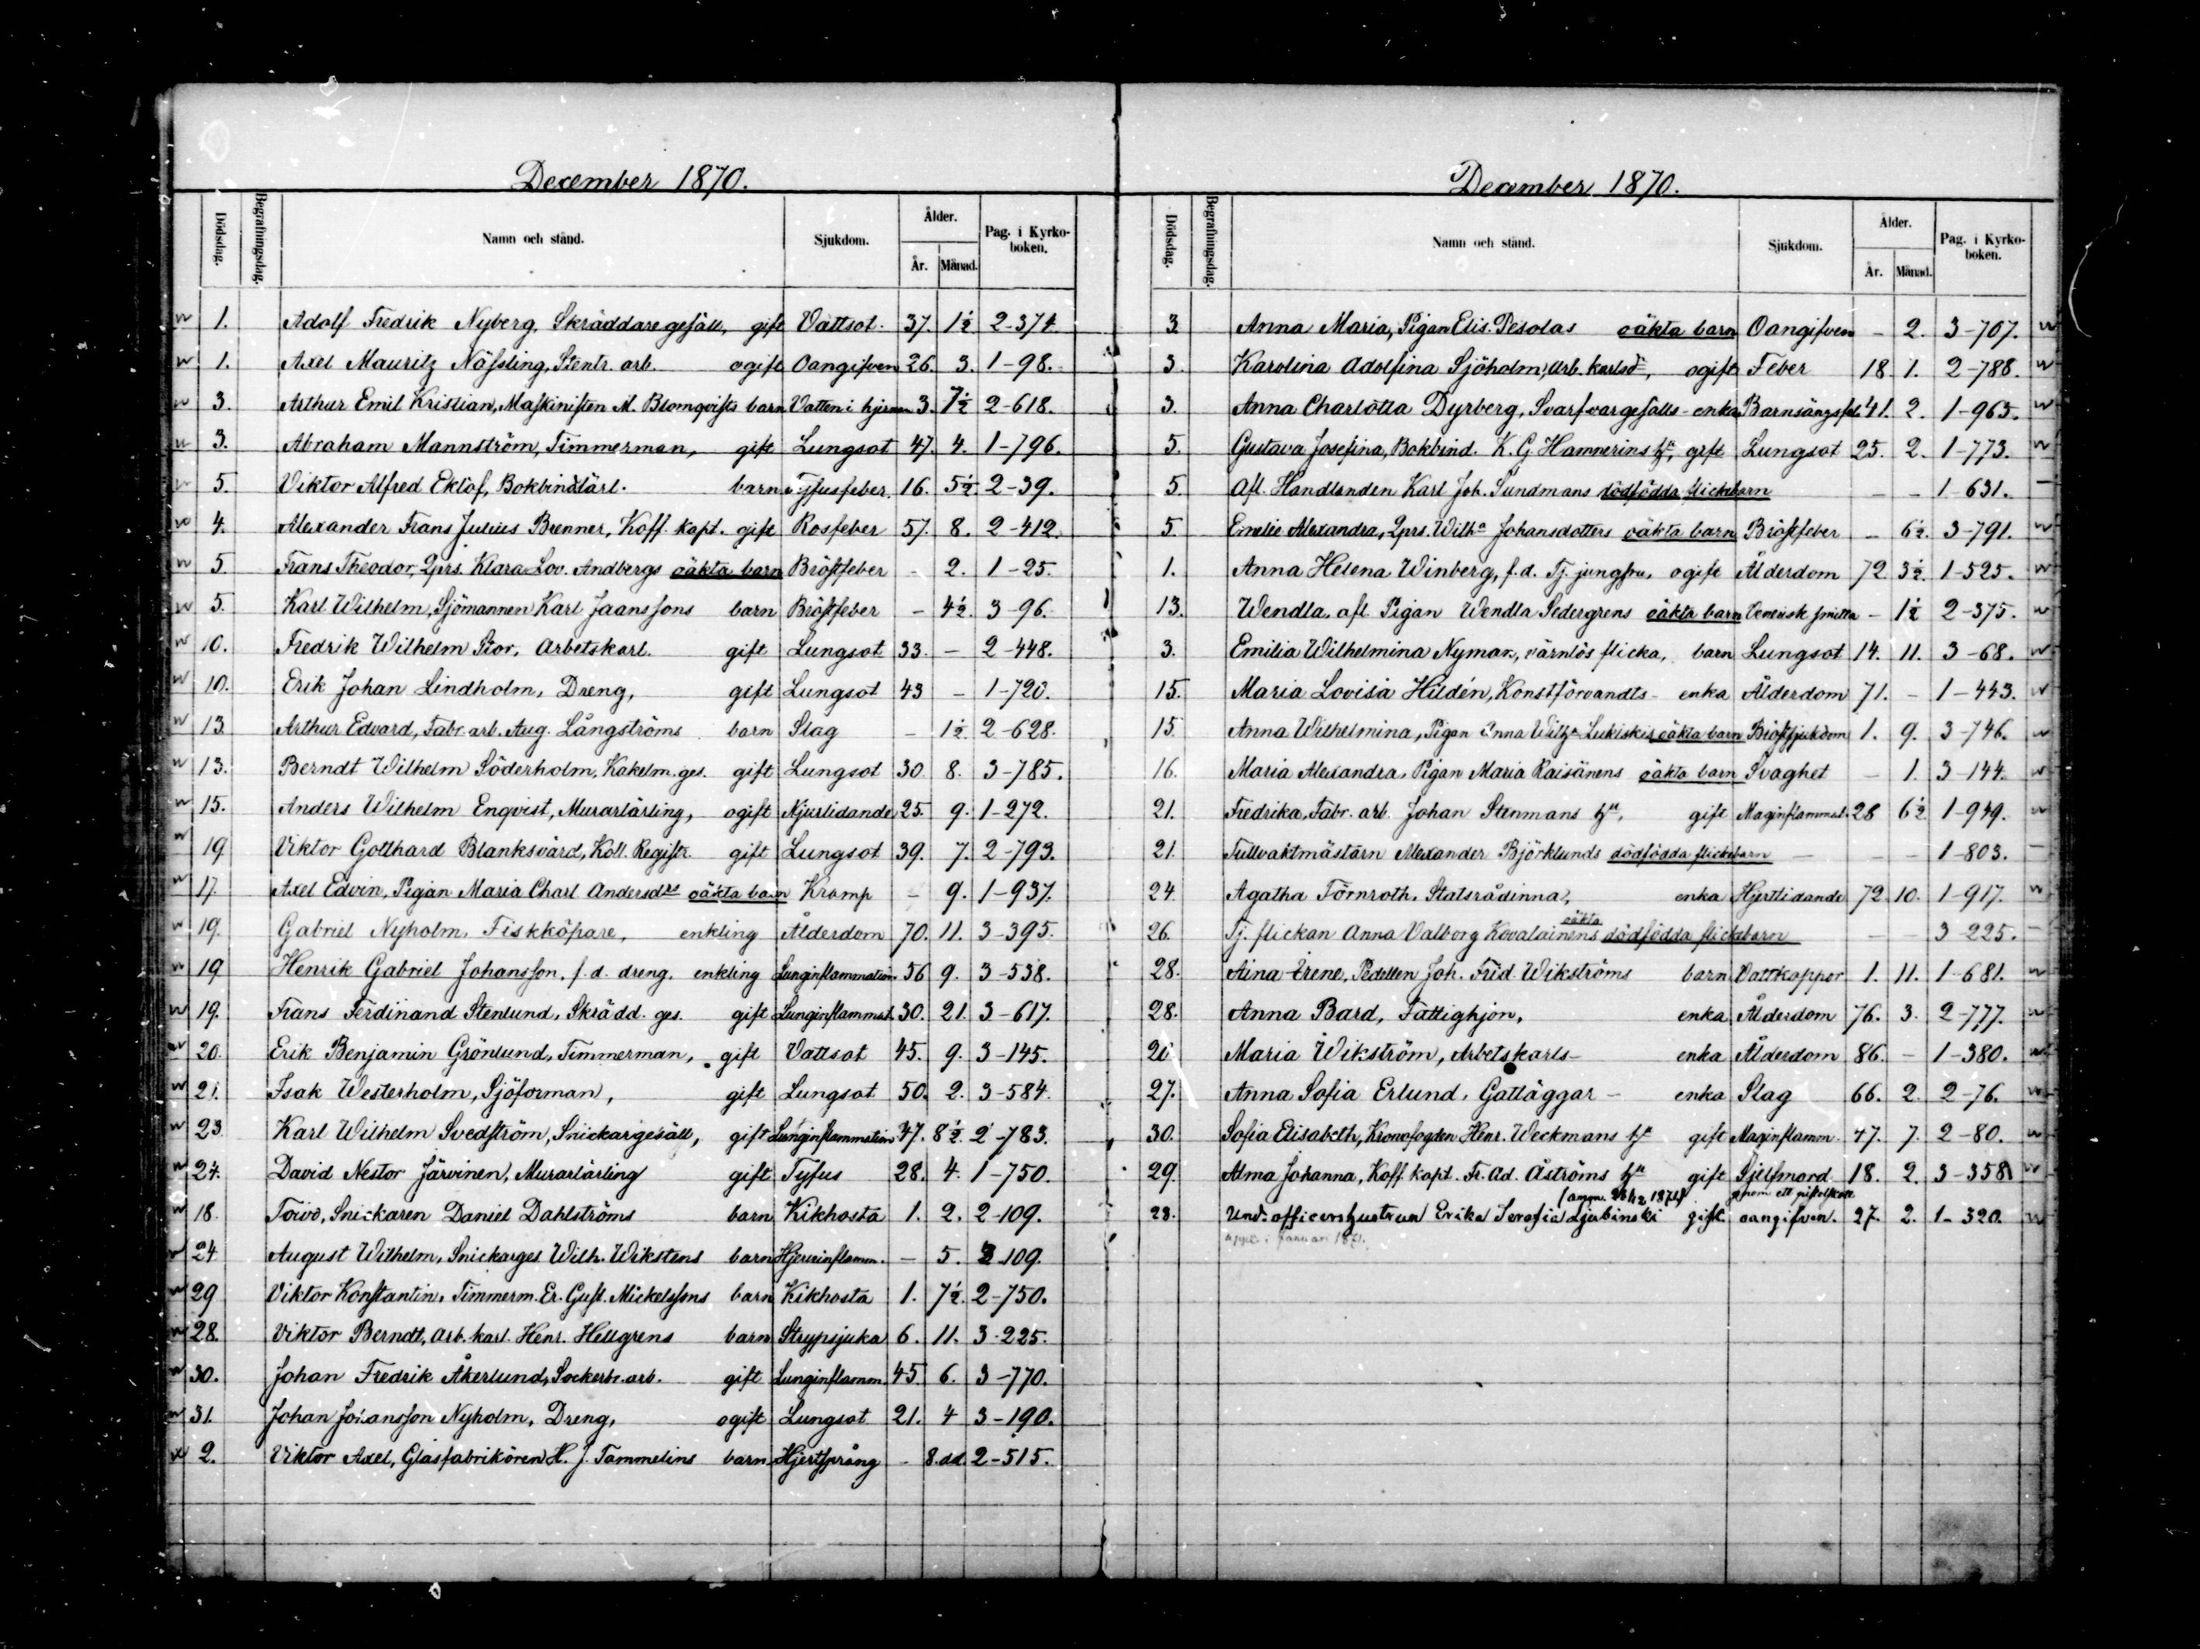 December 1870.
Dödsdag. Begrafningsdag. Namn och stånd. Sjukdom. Ålder. År. Månad. Pag. i Kyrkoboken.
1. Adolf Fredrik Nyberg, Skräddaregesäll, gift Vattsot. 37. 1½ 2-374
1. Axel Mauritz Nässling, Stentr. arb. ogift Oangifven 26. 3. 1-98.
3. Arthur Emil Kristian, Maskinisten M. Blomqvists barn Vatten i hjernan 3. 7½ 2-618.
3. Abraham Mannström, Timmerman, gift Lungsot 47. 4. 1-796.
5. Viktor Alfred Eklöf, Bokbind.lärl. barn Tyfusfeber. 16. 5½. 2-39.
4. Alexander Frans Julius Brenner, Koff. kapt. gift Rosfeber 57. 8. 2-412.
5. Frans Theodor, Qprs. Klara Lov. Andbergs oäkta barn Bröstfeber - 2. 1-25.
5. Karl Wilhelm, Sjömannen Karl Jaanssons barn Bröstfeber - 4½. 3-96.
10. Fredrik Wilhelm Stor, Arbetskarl. gift Lungsot 33. - 2-448.
10. Erik Johan Lindholm, Dreng, gift Lungsot 43 - 1-720.
13. Arthur Edvard, Fabr. arb. Aug. Långströms barn Slag - 1½. 2-628.
13. Berndt Wilhelm Söderholm, Kakelm. ges. gift Lungsot 30. 8. 3-785.
15. Anders Wilhelm Enqvist, Murarlärling, ogift Njurlidande 25. 9. 1-272.
19. Viktor Gotthard Blanksvärd, Koll. Registr. gift Lungsot 39. 7. 2-793.
17. Axel Edvin, Pigan Maria Charl. Andersdrs oäkta barn Kramp - 9. 1-937.
19. Gabriel Nyholm, Fiskköpare, enkling Ålderdom 70. 11. 3-395.
19 Henrik Gabriel Johansson, f.d. dreng, enkling Lunginflammation 56 9. 3-538.
19. Frans Ferdinand Stenlund, Skrädd. ges. gift Lunginflammat. 30. 21. 3-617.
20. Erik Benjamin Grönlund, Timmerman, gift Vattsot 45. 9. 3-145.
21. Isak Westerholm, Sjöforman, gift Lungsot 50. 2. 3-584.
23. Karl Wilhelm Svedström, Snickargesäll, gift Lunginflammation 47. 8½. 2-783.
24. David Nestor Järvinen, Murarlärling gift Tyfus 28. 4. 1-750.
18. Toivo, Snickaren Daniel Dahlströms barn Kikhosta 1. 2. 2-109.
24 August Wilhelm, Snickarges. Wilh. Wikstens barn - 5. 2-109.
29 Viktor Konstantin, Timmerm. Er. Gust. Mickelssons barn Kikhosta 1. 7½. 2-750.
28. Viktor Berndt, Arb. karl. Henr. Hellgrens barn Strypsjuka 6. 11. 3-225.
30. Johan Fredrik Åkerlund, Sockerbr. arb. gift Lunginflamm. 45. 6. 3-770.
31. Johan Johansson Nyholm, Dreng, ogift Lungsot 21. 4 3-190.
2. Viktor Axel, Glasfabrikören H. J. Tammelins barn Hjertsprång - 8. dd. 2-515.
December 1870.
Dödsdag. Begrafningsdag. Namn och stånd. Sjukdom. Ålder. År. Månad. Pag. i Kyrkoboken.
3 Anna Maria, Pigan Elis. Pesolas oäkta barn Oangifven - 2. 3-707.
3. Karolina Adolfina Sjöholm, Arb. karlsdr, ogift Feber 18. 1. 2-788.
3. Anna Charlotta Dyrberg, Svarfvargesälls-enka Barnsängsfeb. 41. 2. 1-963.
5. Gustava Josefina, Bokbind. K. G. Hamnerins hu, gift Lungsot 25. 2. 1-773.
5. Afl. Handlanden Karl Joh. Sundmans dödfödda flickebarn - - 1-631.
5. Emelie Alexandra, Qprs. Wilha Johansdotters oäkta barn Bröstfeber - 6½. 3-791.
1. Anna Helena Winberg, f.d. Tj. jungfru, ogift Ålderdom 72. 3½. 1-525.
13. Wendla, afl. Pigan Wendla Sedergrens oäkta barn Venerisk smitta - 1½ 2-375.
3. Emilia Wilhelmina Nyman, värnlös flicka, barn Lungsot 14. 11. 3-68.
15. Maria Lovisa Hildén, Konstförvandts- enka Ålderdom 71. - 1-443.
15. Anna Wilhelmina, Pigan Anna Wilha Lukiskis oäkta barn Bröstsjukdom 1. 9. 3-746.
16. Maria Alexandra, Pigan Maria Raisänens oäkta barn Svaghet - 1. 3-144.
21. Fredrika, Fabr. arb. Johan Stenmans hu, gift Maginflammat. 28 6½ 1-949.
21. Tullvaktmästarn Alexander Björklunds dödfödda flickebarn - - - 1-803.
24. Agatha Törnroth, Statsrådinna, enka Hjertlidande 72. 10. 1-917.
26. Tj. flickan Anna Valborg Kovalainens oäkta dödfödda flickebarn - - 3-225.
28. Aina Irene, Pedellen Joh. Frid. Wikströms barn Vattkoppor 1. 11. 1-681.
28. Anna Bard, Fattighjon, enka Ålderdom 76. 3. 2-777.
26 Maria Wikström, Arbetskarls- enka Ålderdom 86. - 1-380.
27. Anna Sofia Erlund, Gatläggar- enka Slag 66. 2. 2-76.
30. Sofia Elisabeth, Kronofogden Henr. Weckmans hu gift Maginflamm. 47. 7. 2-80.
29. Alma Johanna, Koff. kapt. Fr. Ad. Åströms hu gift Sjelfmord 18. 2. 3-358
genom ett pistolskott
28. Und: officershustrun Erika Serafia Ljubinski gift oangifven. 27. 2. 1-320.
i januari 1871.